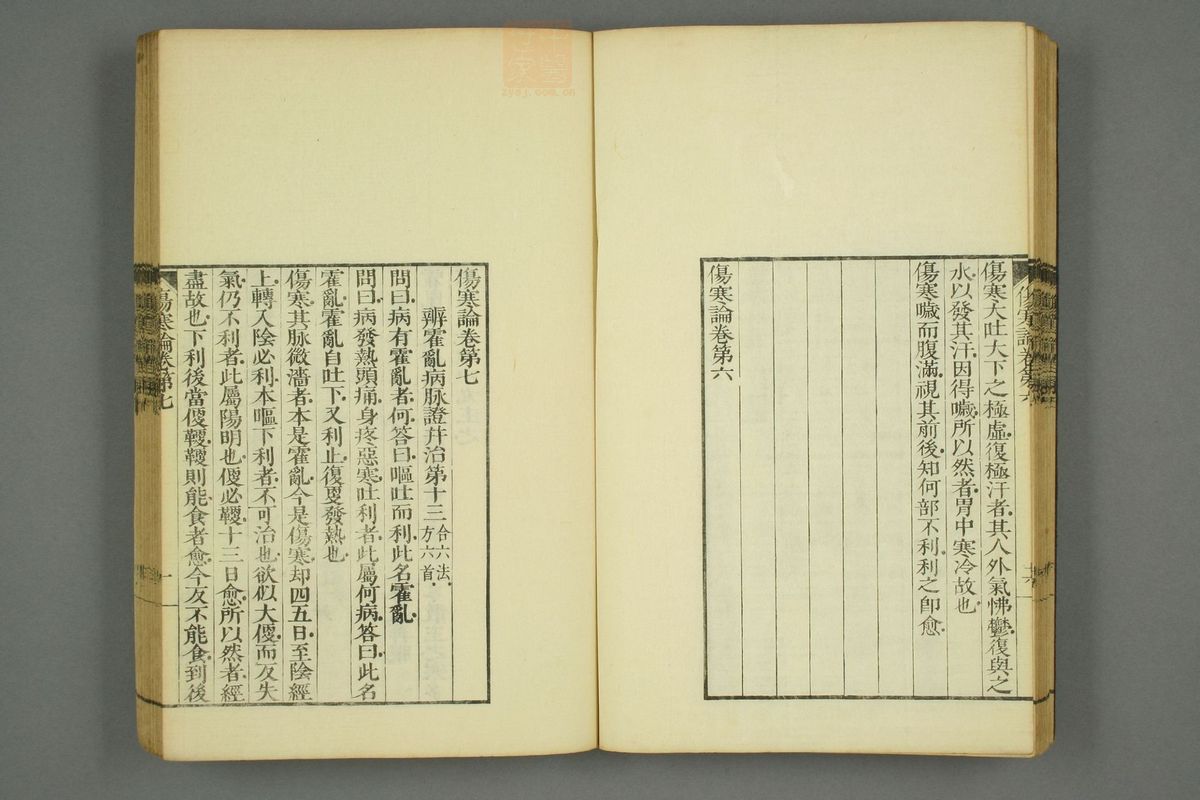 傷寒大吐大下之極虛復極汗者其人外氣怫鬱復與之
水以發其汗因得噦所以然者胃中寒冷故也
傷寒噦而腹滿視其前後知何部不利利之卽愈
傷寒論卷第六
傷寒論卷第七
辨霍亂病脉證幷治第十三 合六法
方六首
問曰病有霍亂者何答曰嘔吐而利此名霍亂
問曰病發熱頭痛身疼惡寒吐利者此屬何病答曰此名
霍亂霍亂自吐下又利止復更發熱也
傷寒其脉微濇者本是霍亂今是傷寒却四五日至陰經
上轉入陰必利本嘔下利者不可治也欲似大便而反失
氣仍不利者此屬陽明也便必鞕十三日愈所以然者經
盡故也下利後當便鞕鞕則能食者愈今反不能食到後
傷寒論卷第七
一
zydj.com.cn